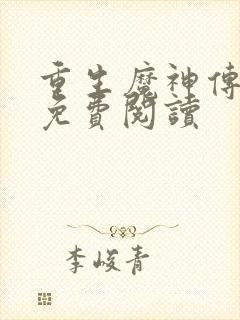 重生魔神傳
免費閱讀
李峻青